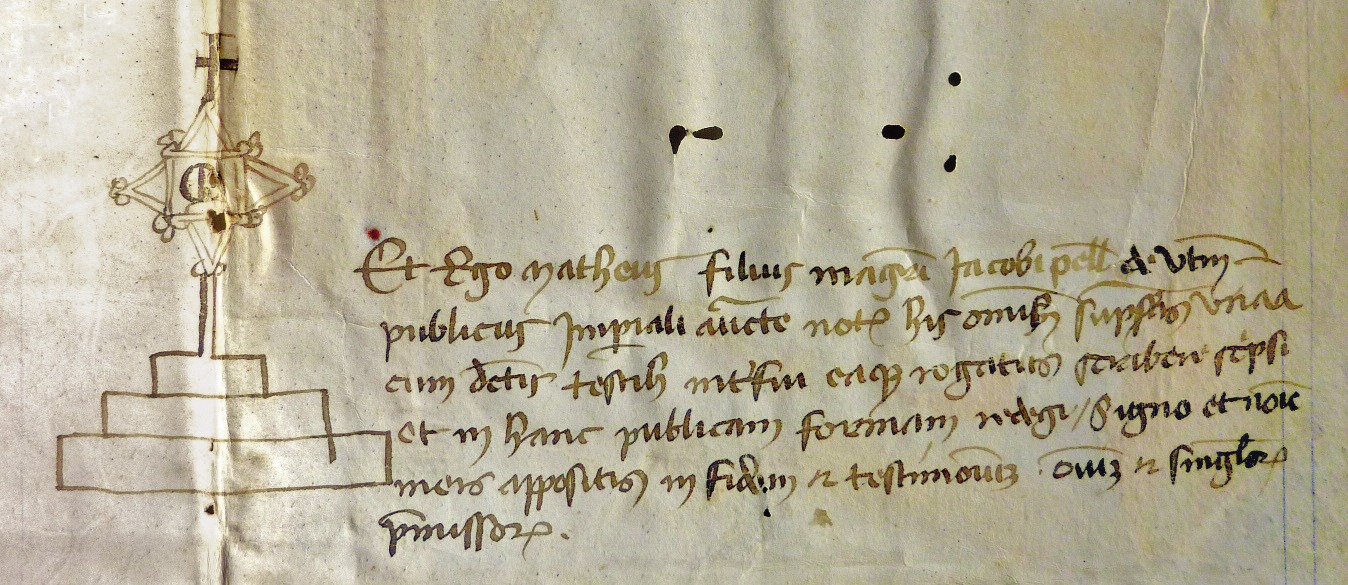 Et Ego Matheus filius magr̄i Jacobi pell̄ de Vtin̄
publicus Imp̄iali auc̄te not᷑ his om̄ib; sup̄sc̄ptis vna a
cum dc̄tis testib; int᷑fui eaq; rogatus scriber̄ sc̄psi
et in hanc publicam formam redegi / Signo et noīe
meis appositis in fidem ⁊ testimoniū oīuꝫ ⁊ singl̄oꝝ
p̄missoꝝ.